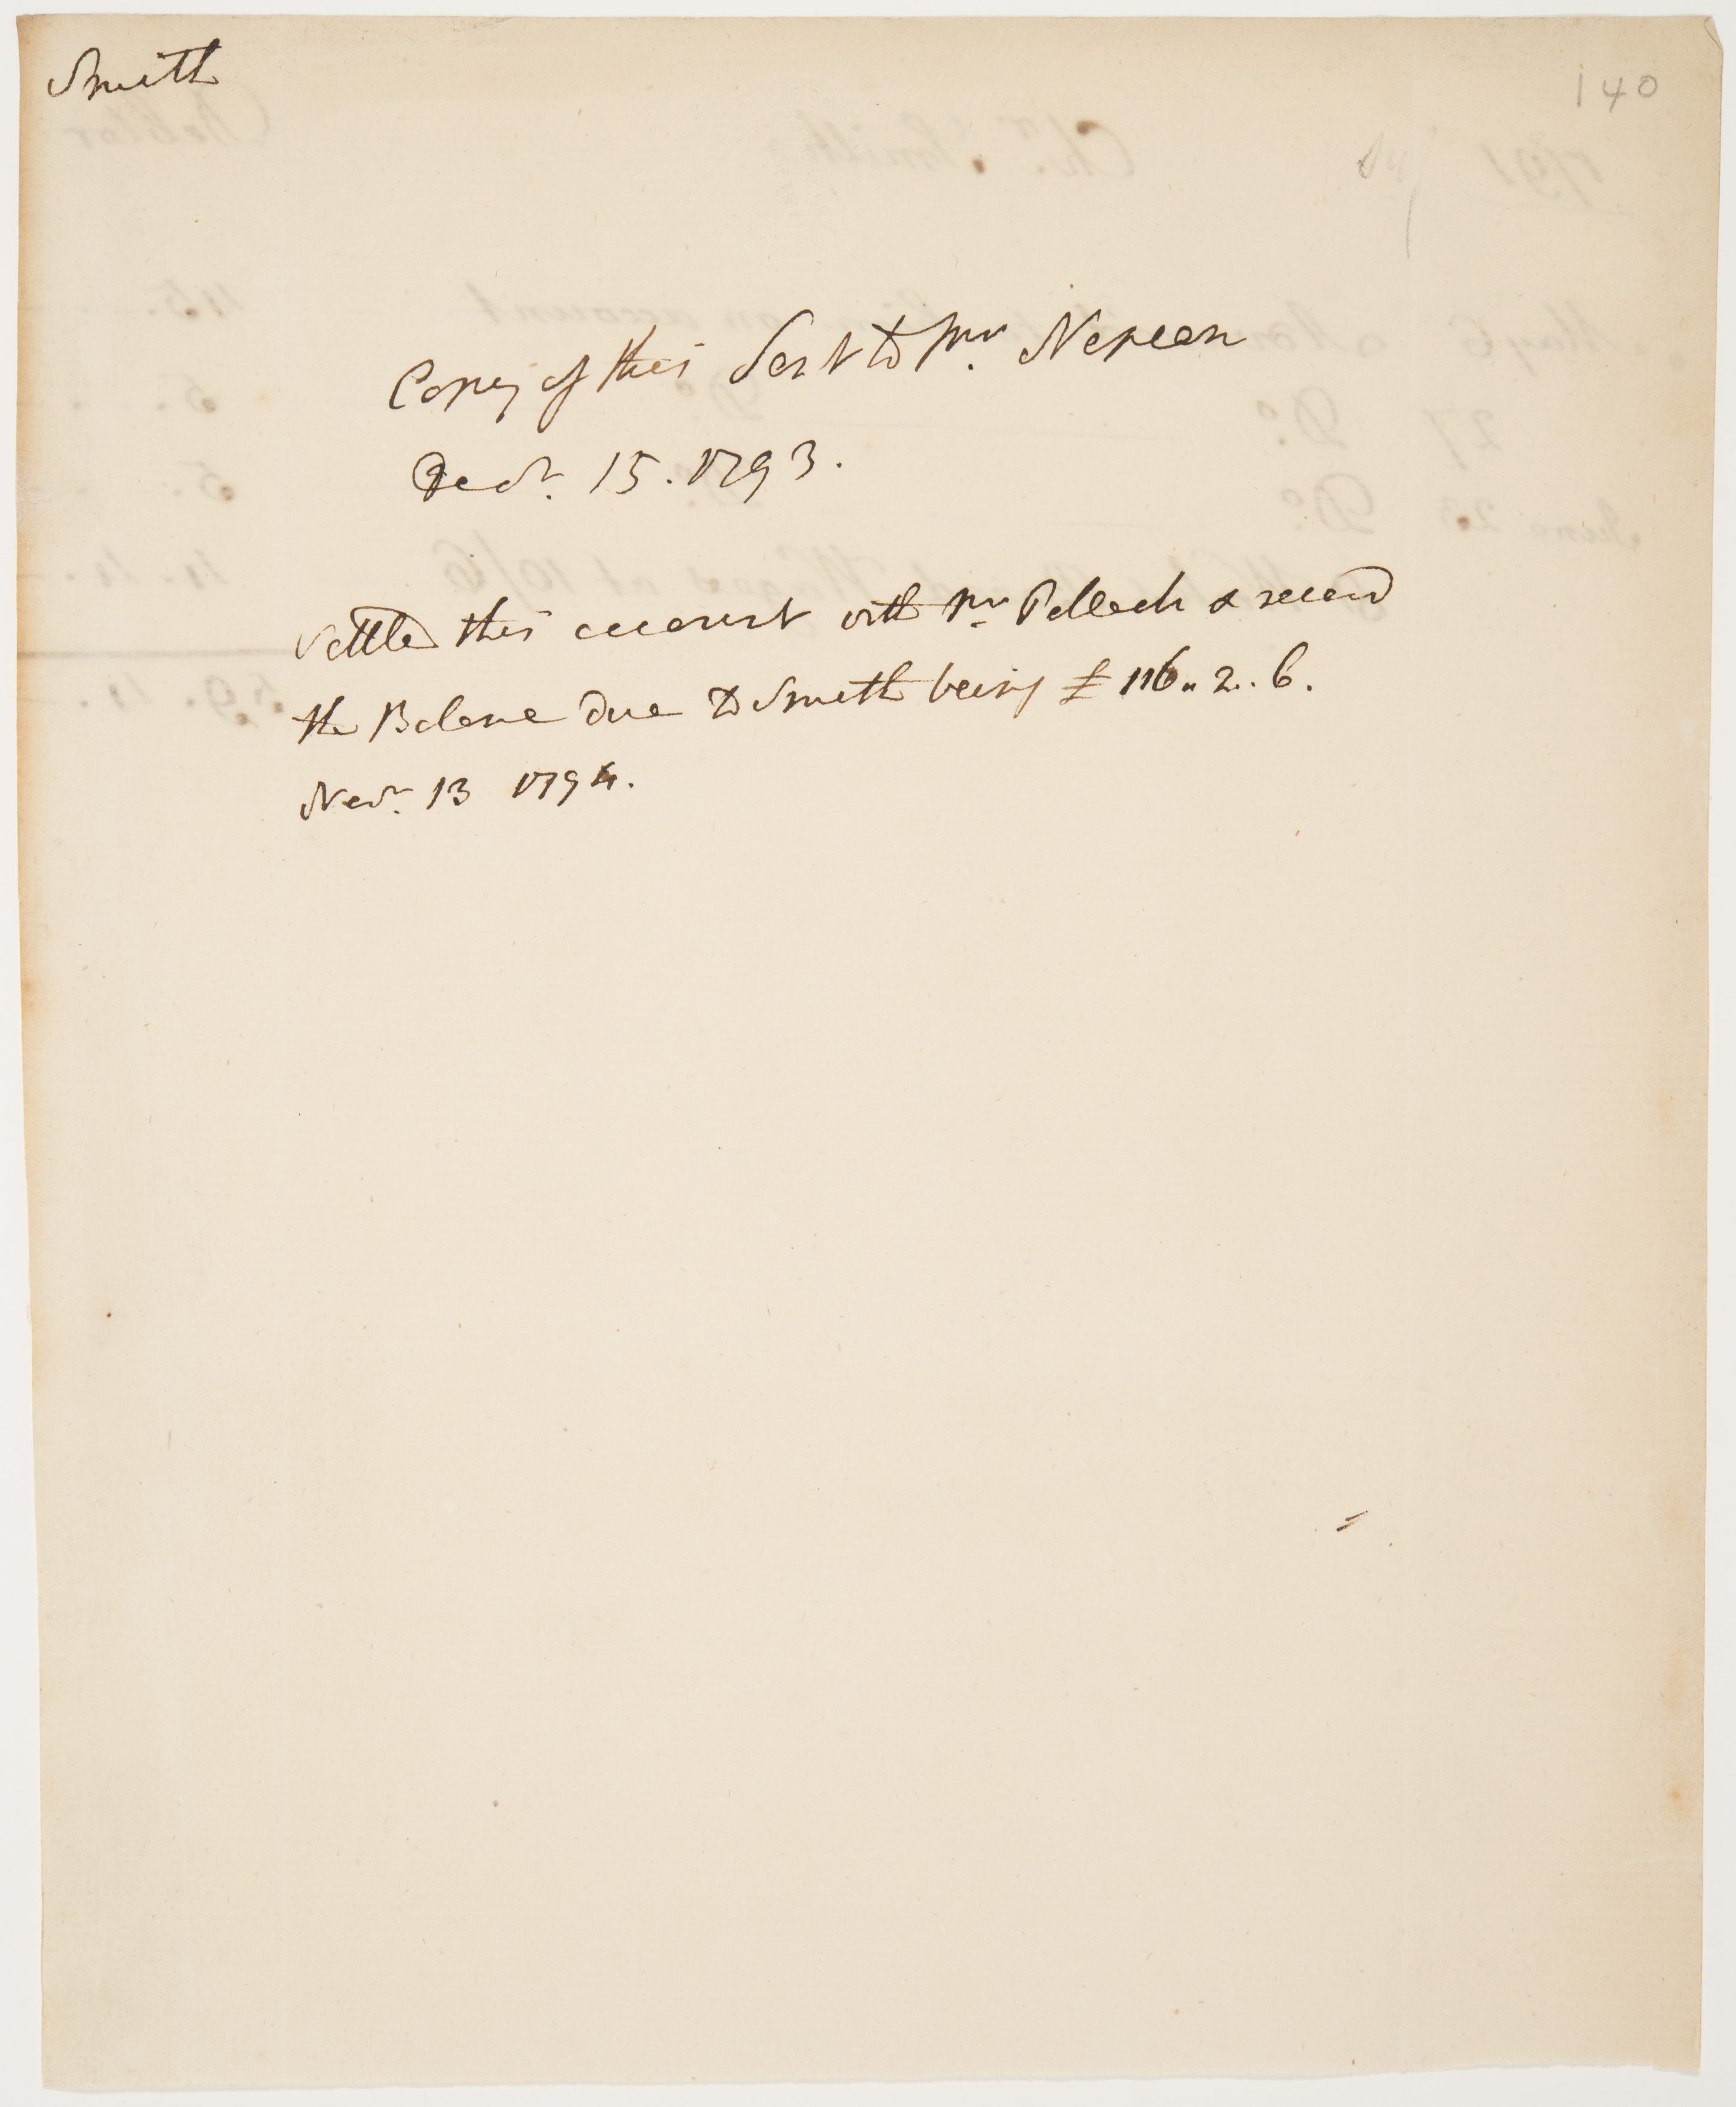 Smith
140
Copy of this Sent to Mr. Nepean
Decr. 15. 1793.
settled this account with Mr Pollock & receivd
the Balance due to Smith being £ 116 .. 2 .. 6.
Novr. 13 1794.